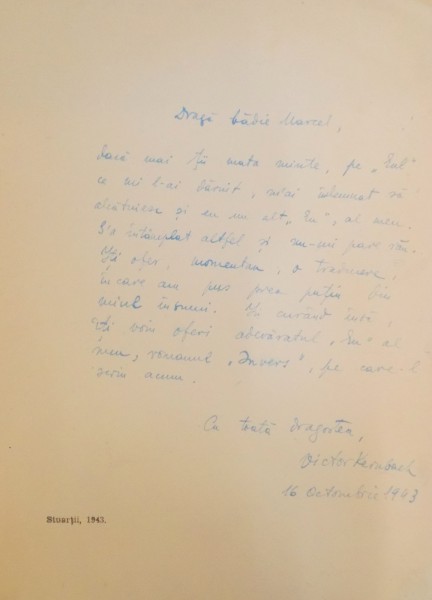 Dragă bădie Marcel,
Dacă mai ții mata minte, pe „Eul"
ce mi l-ai dăruit, m'ai îndemnat să
alcătuiesc și eu un alt „Eu", al meu.
S'a întâmplat altfel și nu-mi pare rău.
Iți ofer, momentan, o traducere
în care am pus prea puțin din
mine însumi. In curând însă,
îți voiu oferi adevăratul „Eu" al
meu, romanul „Invers", pe care-l
scriu acum.
Cu toată dragostea,
Victor Kernbach
16 Octombrie 1943
Stuarții, 1943.